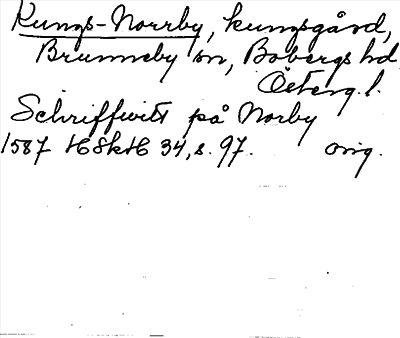 Kungs-Norrby, kungsgård,
Brunneby sn, Bobergs hd
Östergl.
Schriffwitt på Norby
1587 HSkH 34, s. 97. orig.